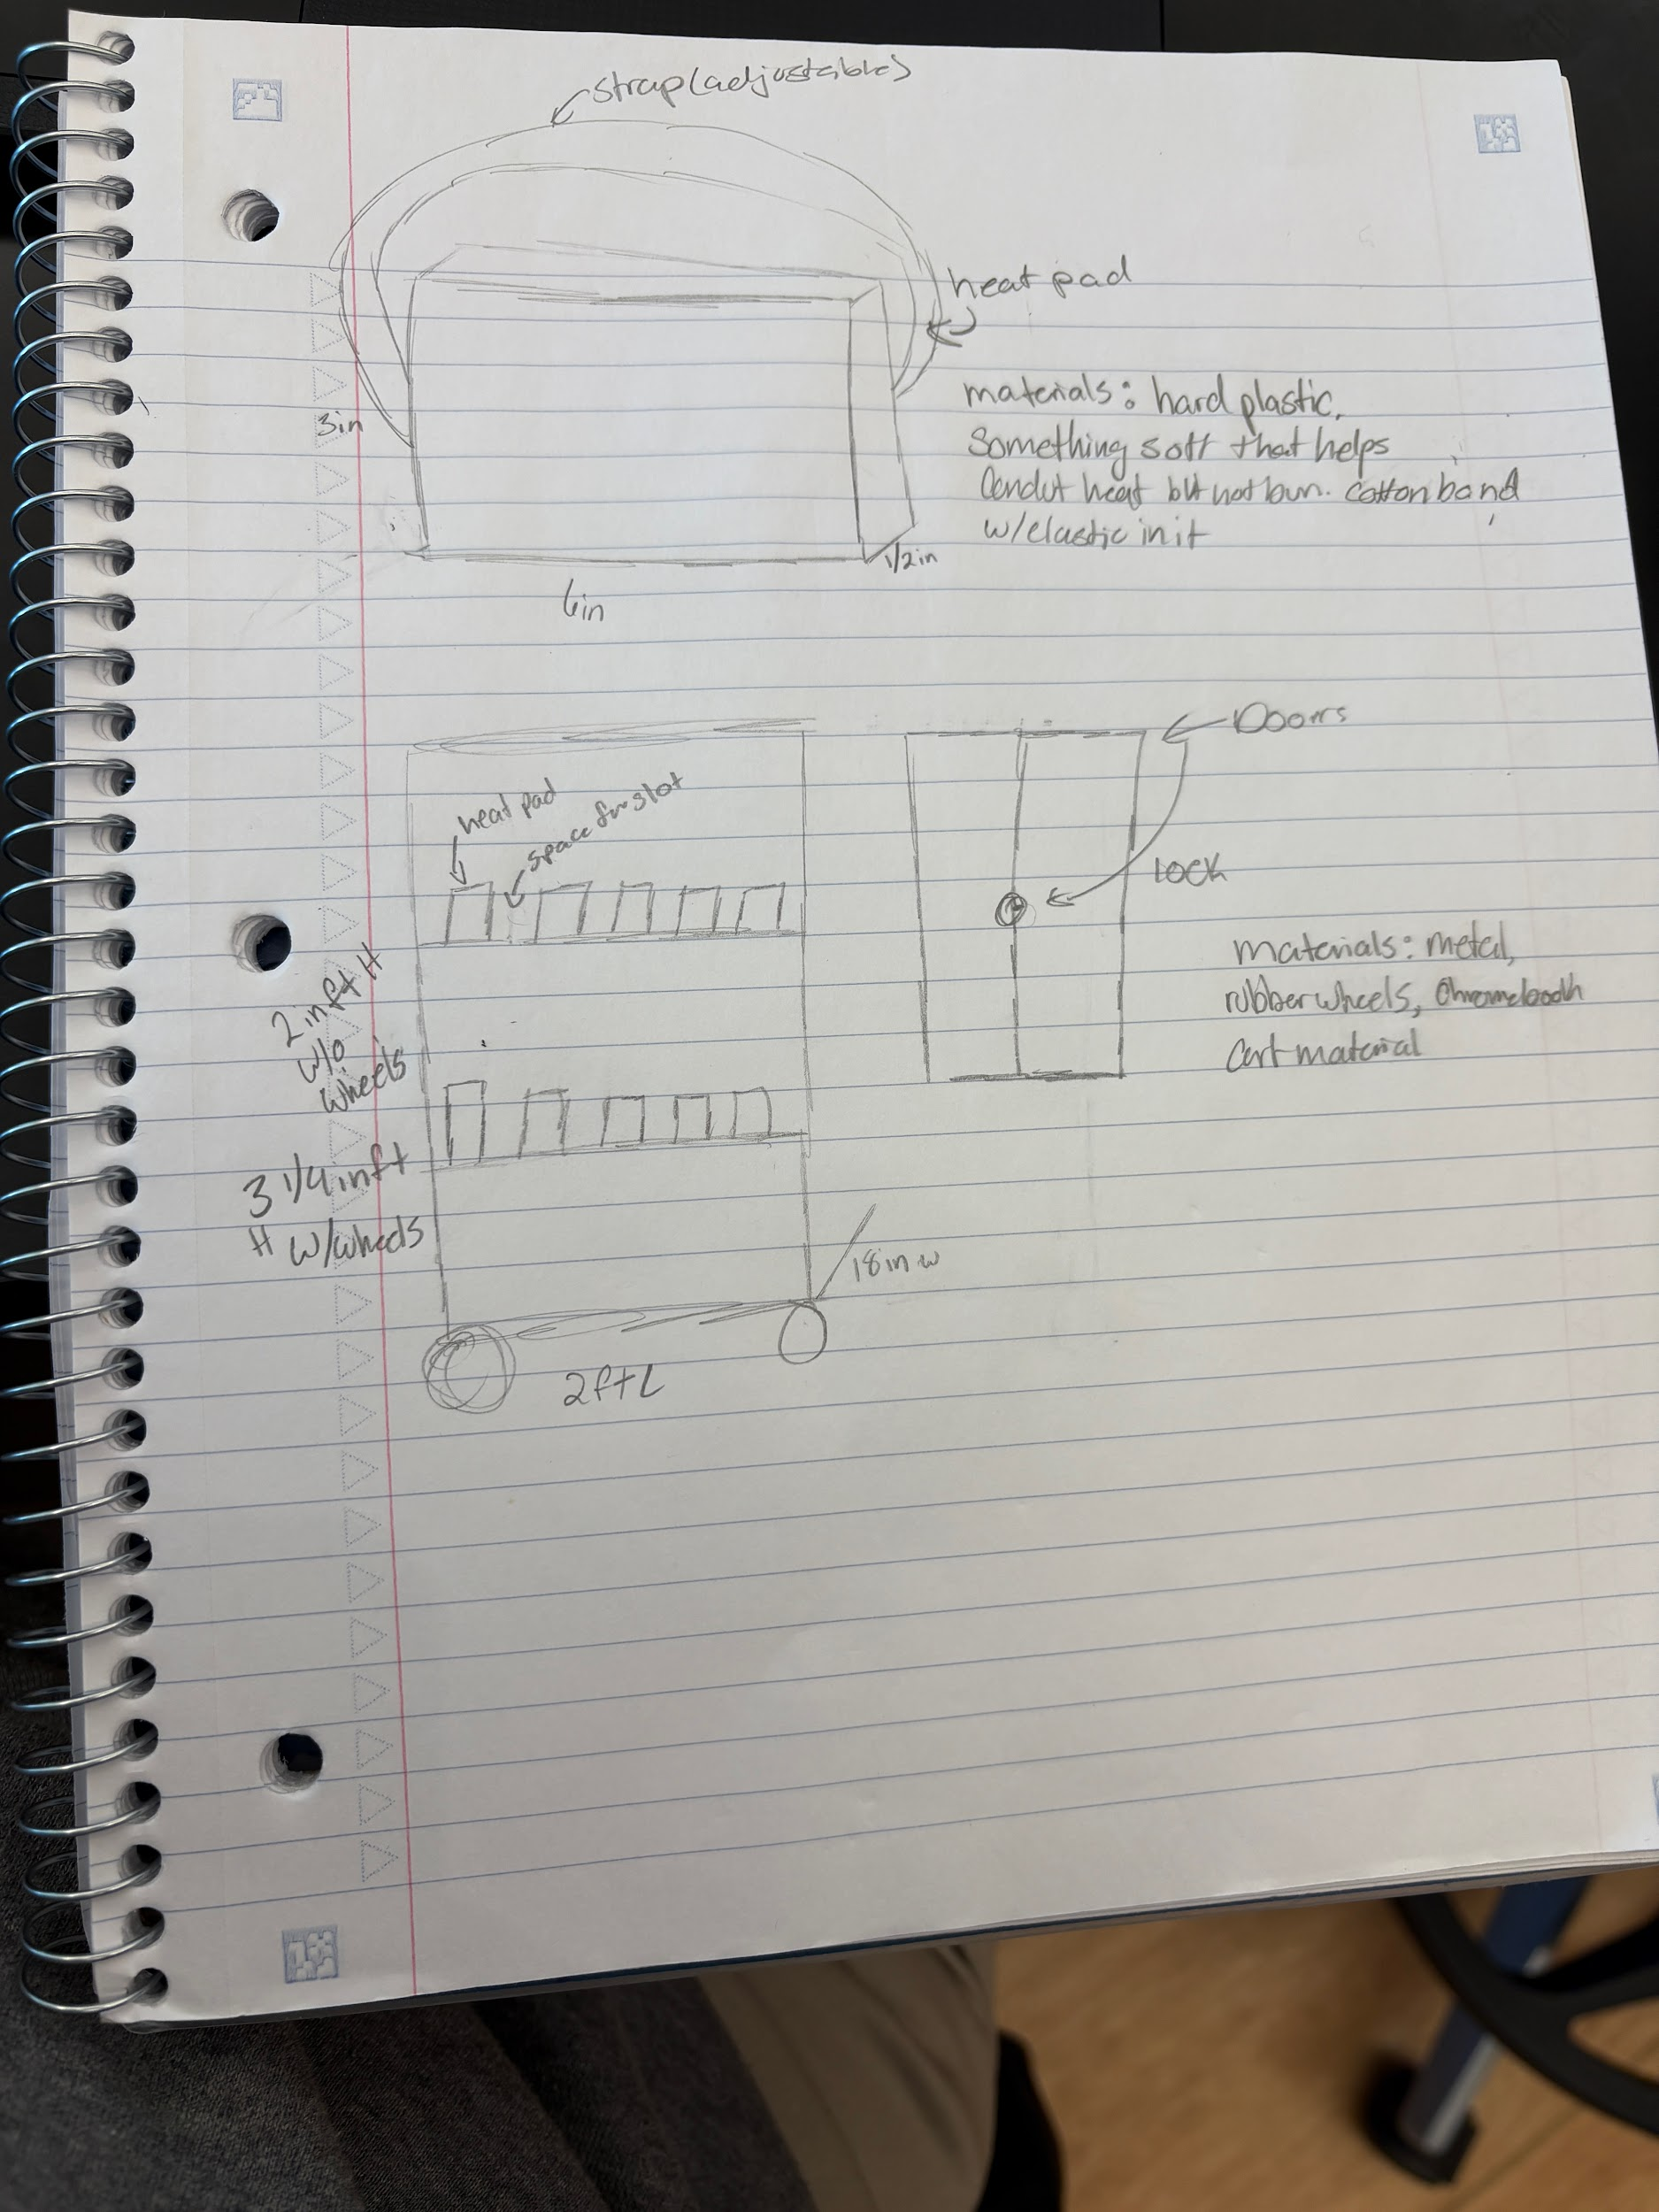 strap(adjustable)
heat pad
3in
materials: hard plastic,
Something soft that helps
Conduct heat but not burn. cotton band
w/elastic in it
1/2in
6in
Doors
heat pad
space for slot
lock
materials: metal,
rubber wheels, Chromebook
Cart material
2 in ft H
w/o
wheels
3 1/4 in ft
H w/wheels
18in w
2ft L